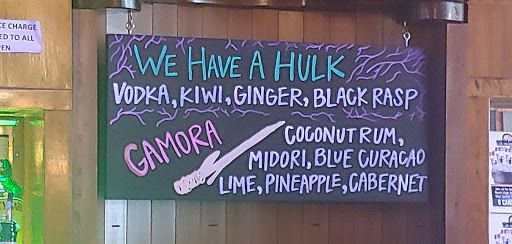 CE CHARGE
ED TO ALL
PEN
WE HAVE A HULK
VODKA, KIWI, GINGER, BLACK RASP
GAMORA
COCONUT RUM,
MIDORI, BLUE CURACAO
LIME, PINEAPPLE, CABERNET